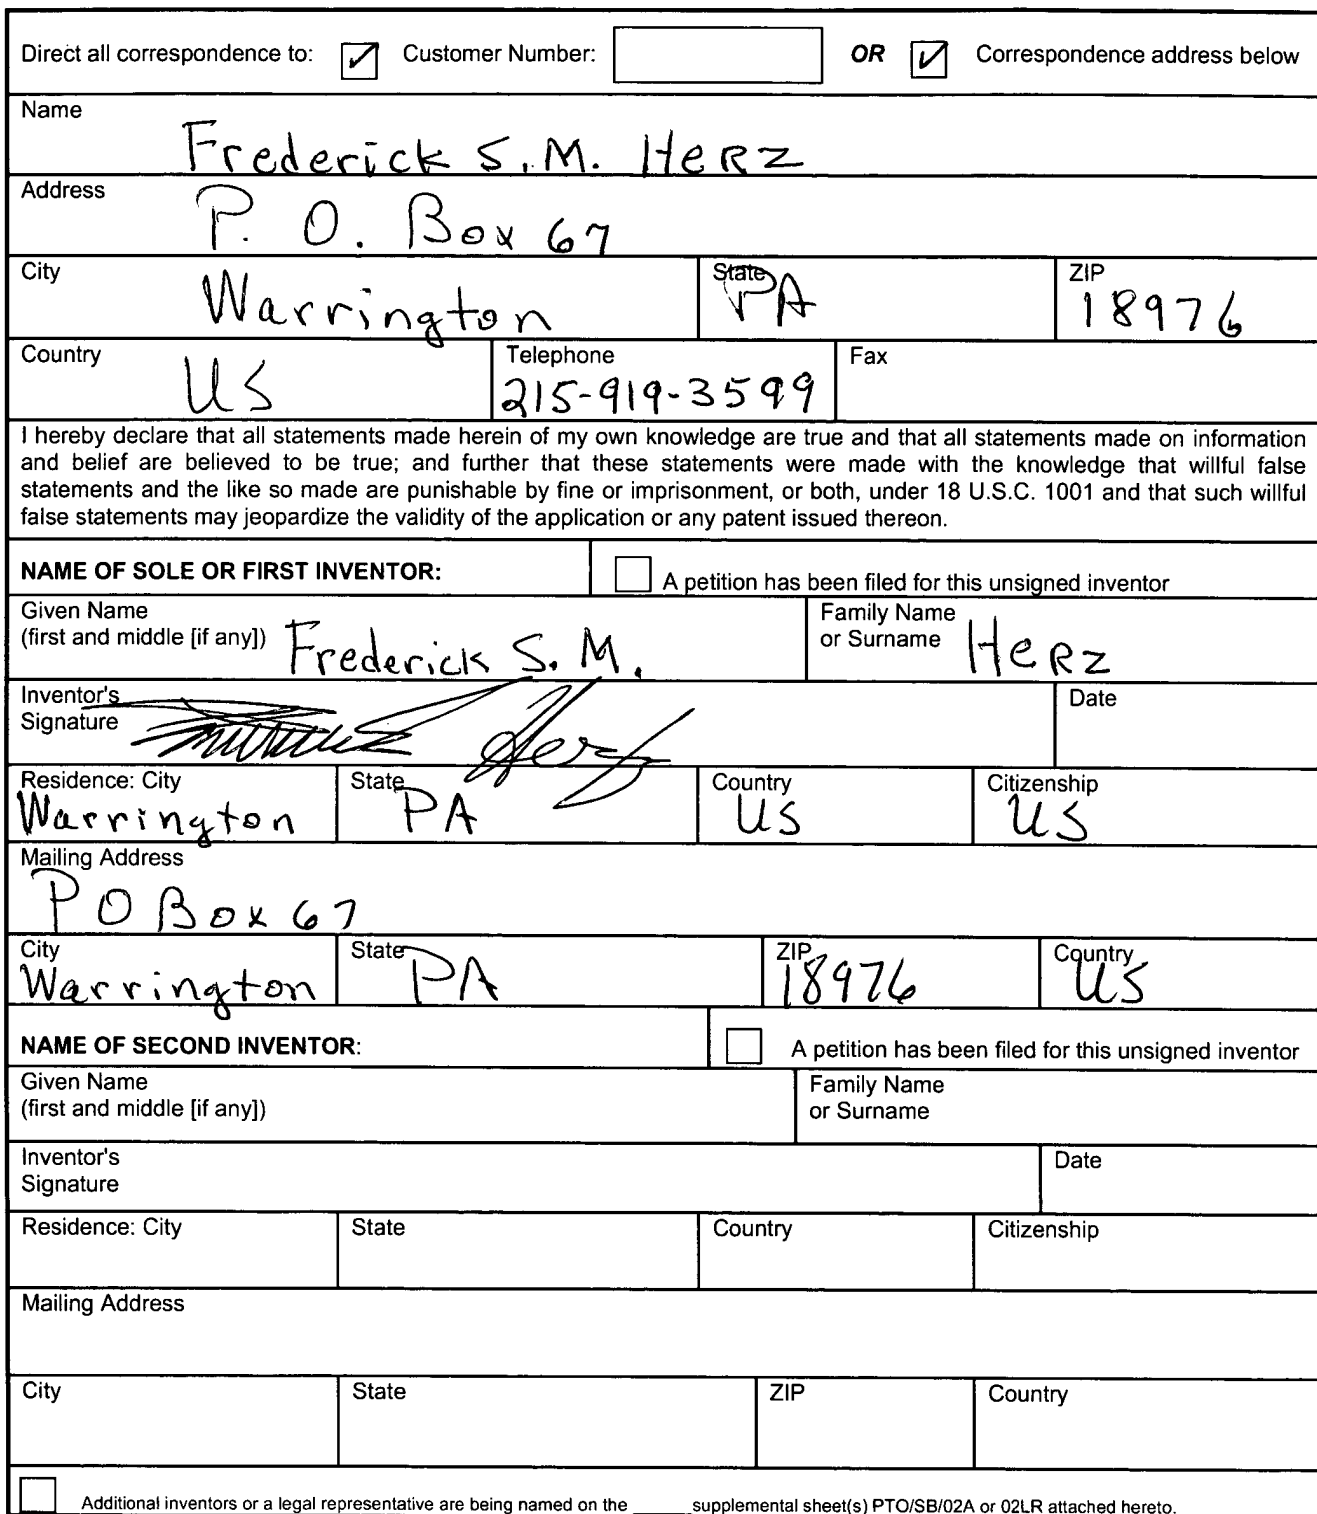 Direct all correspondence to: Customer Number: OR Correspondence address below
Name
Frederick S.M. Herz
Address
P. O. Box 67
City State ZIP
Warrington PA 18976
Country Telephone Fax
US 215-919-3599
I hereby declare that all statements made herein of my own knowledge are true and that all statements made on information
and belief are believed to be true; and further that these statements were made with the knowledge that willful false
statements and the like so made are punishable by fine or imprisonment, or both, under 18 U.S.C. 1001 and that such willful
false statements may jeopardize the validity of the application or any patent issued thereon.
NAME OF SOLE OR FIRST INVENTOR: A petition has been filed for this unsigned inventor
Given Name Family Name
(first and middle [if any]) Frederick S. M. or Surname Herz
Inventor's Date
Signature Herz
Residence: City State Country Citizenship
Warrington PA US US
Mailing Address
PO Box 67
City State ZIP Country
Warrington PA 18976 US
NAME OF SECOND INVENTOR: A petition has been filed for this unsigned inventor
Given Name Family Name
(first and middle [if any]) or Surname
Inventor's Date
Signature
Residence: City State Country Citizenship
Mailing Address
City State ZIP Country
Additional inventors or a legal representative are being named on the ______ supplemental sheet(s) PTO/SB/02A or 02LR attached hereto.